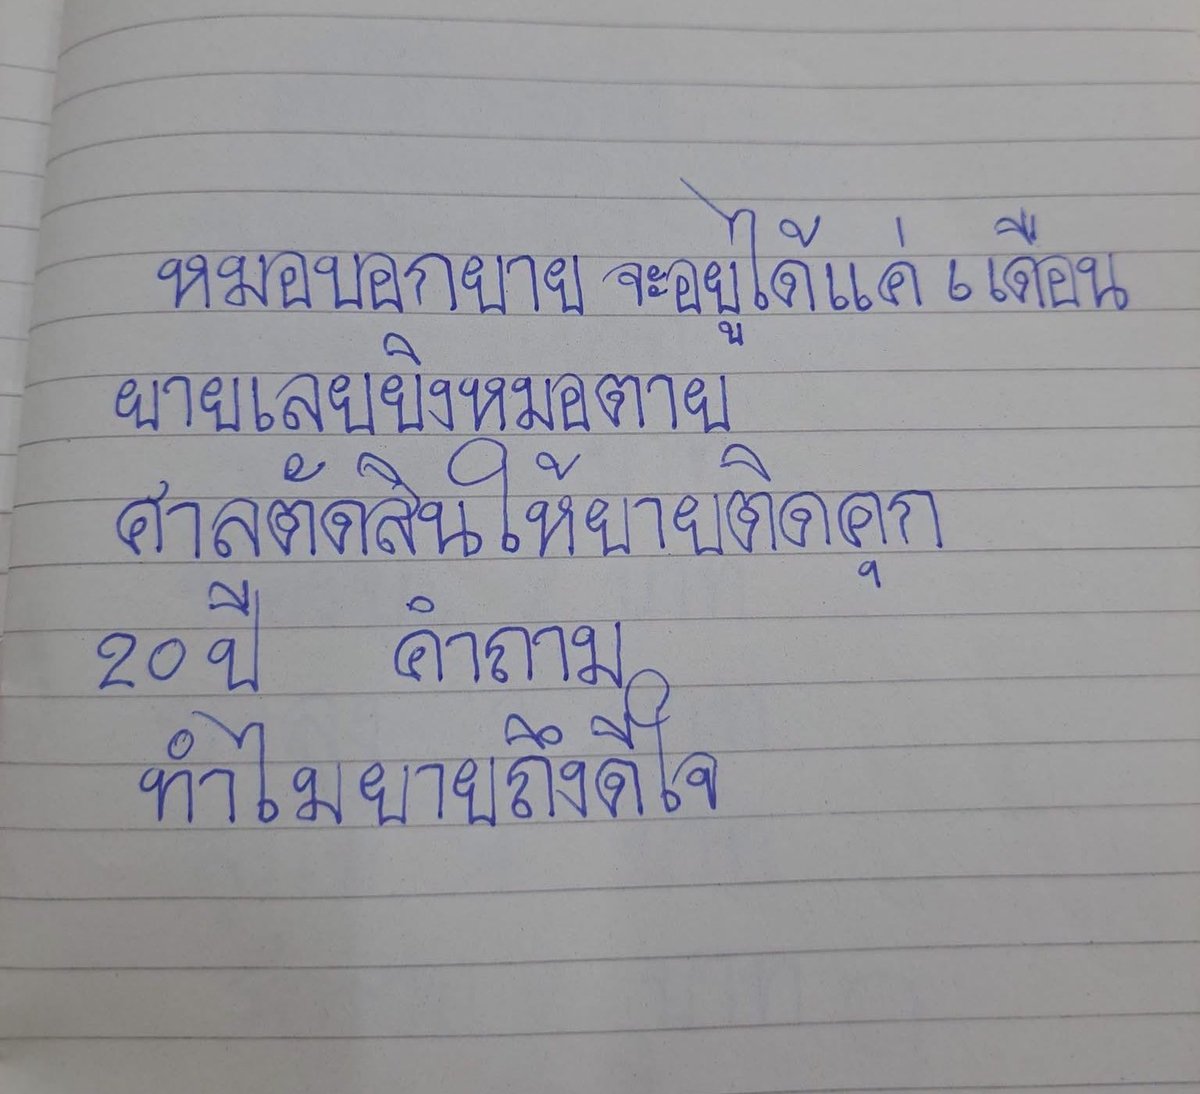 หมอบอกยาย จะอยู่ได้แค่ 6 เดือน
ยายเลยยิงหมอตาย
ศาลตัดสินให้ยายติดคุก
20 ปี คำถาม
ทำไมยายถึงดีใจ